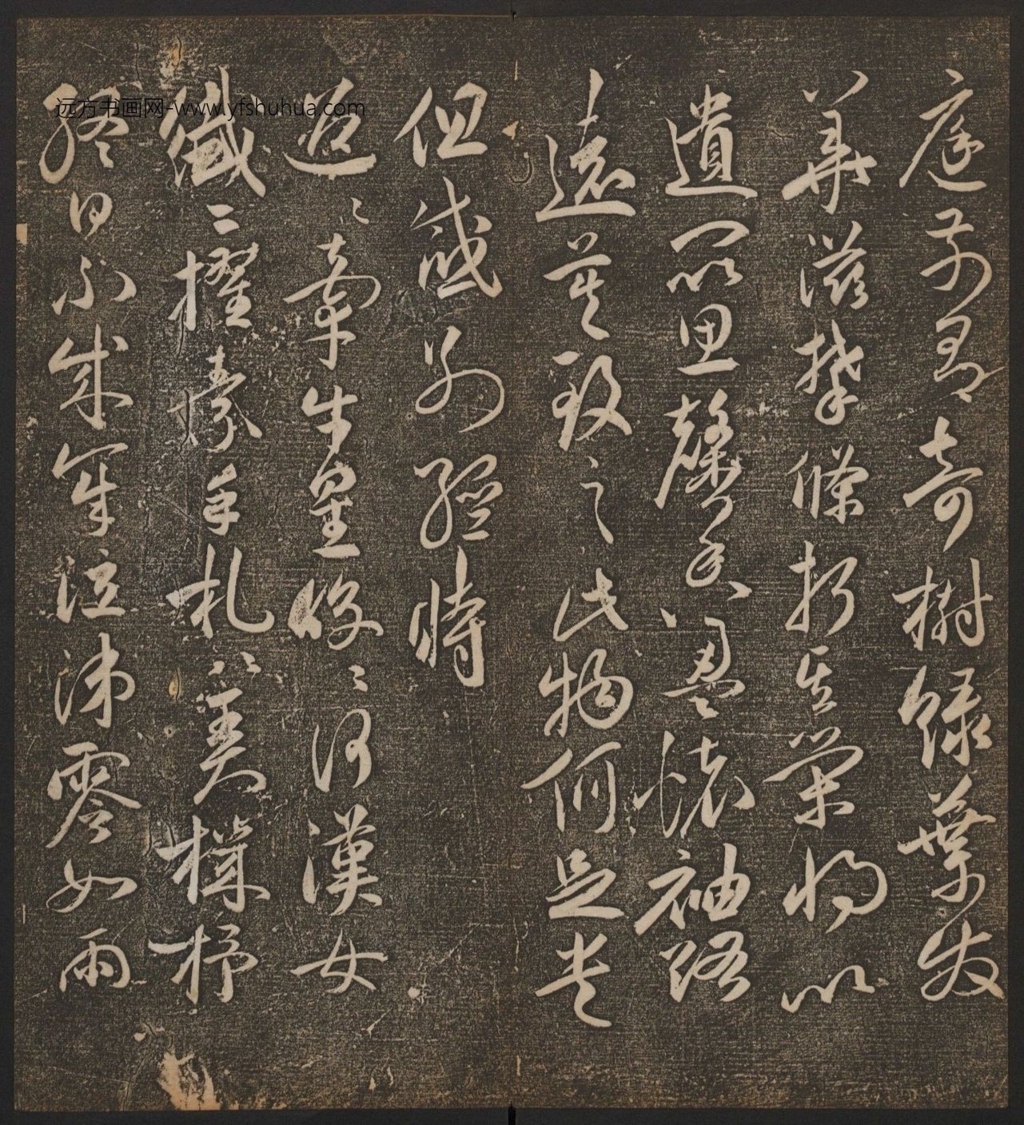 庭前有奇樹綠葉發
華滋攀條折其榮將以
遺所思馨香盈懷袖路
遠莫致之此物何足貴
但感別經時
迢〻牽牛星皎〻河漢女
纖〻擢素手札〻弄機杼
終日不成章泣涕零如雨
远方书画网-www.yfshuhua.com